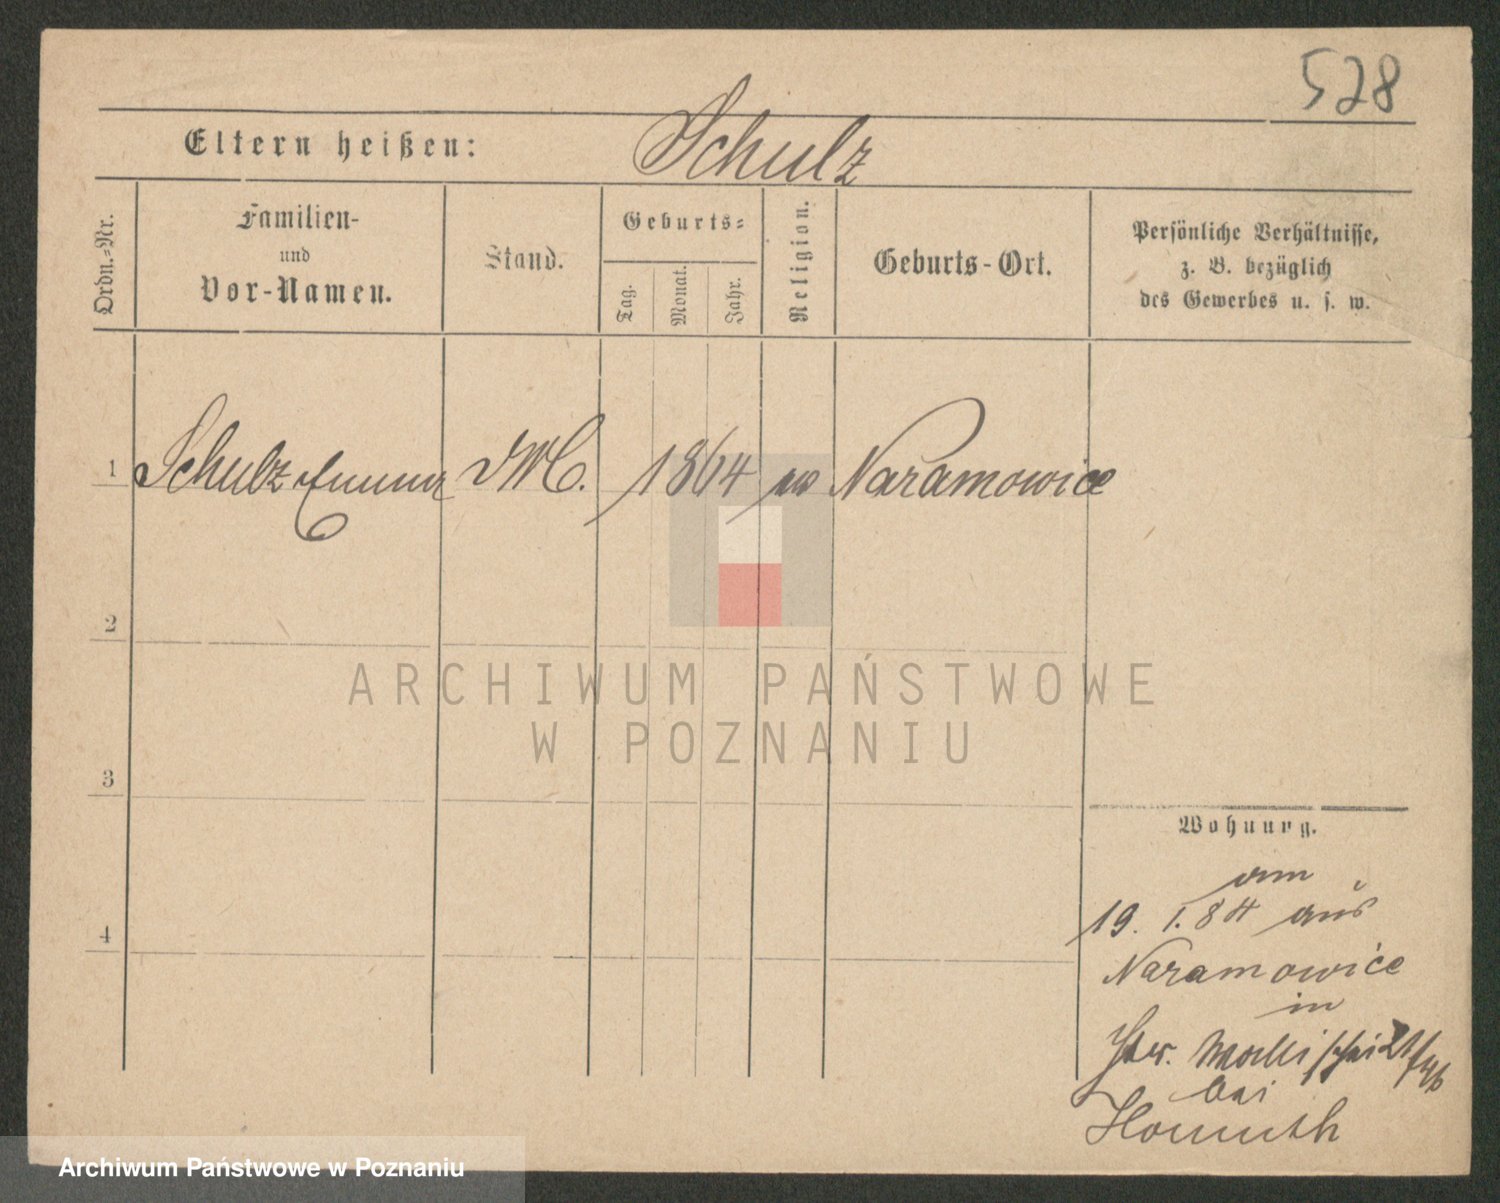 528
Eltern heißen: Schulz
Ordn.-Nr.
Familien-
und
Vor-Namen.
Stand.
Geburts-
Tag.
Monat.
Jahr.
Religion.
Geburts-Ort.
Persönliche Verhältnisse,
z. B. bezüglich
des Gewerbes u. s. w.
1 Schulz Emma 1864 ev Naramowice
2
3
4
Wohnung.
am
19. 1. 84 aus
Naramowice
in
Wallischei
bei
Homuth
ARCHIWUM PAŃSTWOWE
W POZNANIU
Archiwum Państwowe w Poznaniu